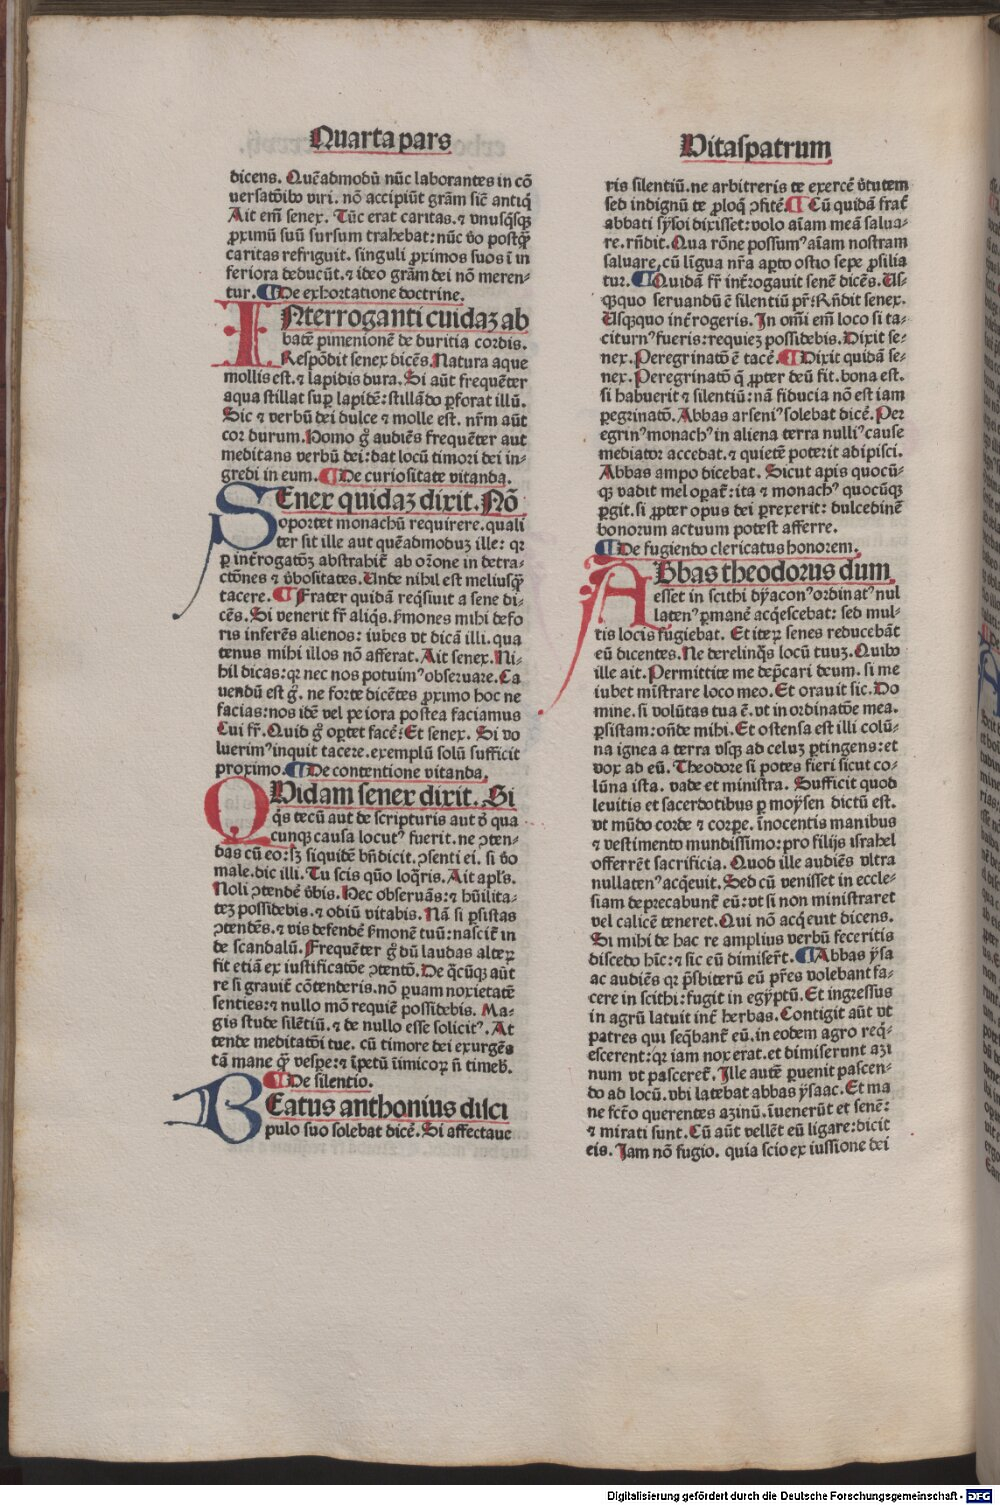 Quarta pars
dicens. Quēadmodū nūc laborantes in cō
uersatōibꝰ viri. nō accipiūt grām sic̄ antiq̄
Ait em̄ senex. Tūc erat caritas. ⁊ vnusq̄sqꝫ
ꝓximū suū sursum trahebat: nūc v̄o postq̄ꝫ
caritas refriguit. singuli ꝓximos suos ī in
feriora deducūt. ⁊ ideo grām dei nō meren-
tur. ¶ De exhortatione doctrine.
INterroganti cuidaꝫ ab
batē pimenionē de duritia cordis.
Respōdit senex dicēs. Natura aque
mollis est. ⁊ lapidis dura. Si aūt frequēter
aqua stillat suꝑ lapidē: stillādo ꝑforat illū.
Sic ⁊ verbū dei dulce ⁊ molle est. nr̄m aūt
cor durum. Homo gͦ audiēs frequēter aut
meditans verbū dei: dat locū timori dei in-
gredi in eum. ¶ De curiositate vitanda.
SEnex quidaꝫ dixit. Nō
oportet monachū requirere. quali
ter sit ille aut quēadmoduꝫ ille: qꝛ
ꝑ int̄rogatōꝫ abstrahit̄ ab or̄one in detra-
ctōnes ⁊ v̄bositates. Unde nihil est meliusq̄ꝫ
tacere. ¶ Frater quidā reqͥsiuit a sene di-
cēs. Si venerit fr̄ aliqͥs. s̄mones mihi defo
ris inferēs alienos: iubes vt dicā illi. qua
tenus mihi illos nō afferat. Ait senex. Ni-
hil dicas: qꝛ nec nos potuimꝰ obseruare. Ca
uendū est gͦ. ne forte dicētes ꝓximo hoc ne
facias: nos idē vel peiora postea faciamus
Cui fr̄. Quid gͦ oꝑtet facē: Et senex. Si vo
luerimꝰ inquit tacere. exemplū solū sufficit
proximo. ¶ De contentione vitanda.
QUidam senex dixit. Si
qͥs tecū aut de scripturis aut ō qua
cunqꝫ causa locutꝰ fuerit. ne ꝯten-
das cū eo: sꝫ siquidē bn̄dicit. ꝯsenti ei. si v̄o
male. dic illi. Tu scis quō loq̄ris. Ait apl̄s.
Noli ꝯtendē v̄bis. Hec obseruās: ⁊ hūilita-
teꝫ possidebis. ⁊ odiū vitabis. Nā si ꝑsistas
ꝯtendēs. ⁊ vis defendē s̄monē tuū: nascit̄ in
de scandalū. Frequēter gͦ dū laudas alteꝝ
fit etiā ex iustificatōe ꝯtentō. De qͥcūqꝫ aūt
re si grauit̄ cōtenderis. nō ꝑuam noxietatē
senties: ⁊ nullo mō requiē possidebis. Ma-
gis stude silētiū. ⁊ de nullo esse solicitꝰ. At
tende meditatōi tue. cū timore dei exurgēs
tā mane q̄ꝫ vespe: ⁊ īpetū īimicoꝝ n̄ timeb̄.
¶ De silentio.
BEatus anthonius disci
pulo suo solebat dicē. Si affectauc
Uitaspatrum
ris silentiū. ne arbitreris te exercē v̄tutem
sed indignū te ꝓloqͥ ꝯfitē. ¶ Cū quidā frat̄
abbati sysoi dixisset: volo aīam meā salua-
re. rn̄dit. Qua rōne possumꝰ aīam nostram
saluare, cū lingua nr̄a aꝑto ostio sepe ꝓsilia
tur. ¶ Quidā fr̄ int̄rogauit senē dicēs. Us-
qꝫquo seruandū ē silentiū pr̄: Rn̄dit senex.
Usqꝫquo int̄rogeris. In om̄i em̄ loco si ta-
citurnꝰ fueris: requieꝫ possidebis. Dixit se-
nex. Peregrinatō ē tacē. ¶ Dixit quidā se-
nex. Peregrinatō q̄ ꝓpter deū fit. bona est.
si habuerit ⁊ silentiū: nā fiducia nō est iam
ꝑegrinatō. Abbas arseniꝰ solebat dicē. Per
egrinꝰ monachꝰ in aliena terra nulliꝰ cause
mediator accedat. ⁊ quietē poterit adipisci.
Abbas ampo dicebat. Sicut apis quocū-
qꝫ vadit mel oꝑat̄: ita ⁊ monachꝰ quocūqꝫ
ꝑgit. si ꝓpter opus dei ꝑrexerit: dulcedinē
bonorum actuum potest afferre.
¶ De fugiendo clericatus honorem.
ABbas theodorus dum
esset in scithi dyaconꝰ ordinatꝰ nul
latenꝰ ꝑmanē acq̄escebat: sed mul-
tis locis fugiebat. Et iteꝝ senes reducebāt
eū dicentes. Ne derelinqͥs locū tuuꝫ. Quibꝰ
ille ait. Permittite me dep̄cari deum. si me
iubet mīstrare loco meo. Et orauit sic. Do
mine. si volūtas tua ē. vt in ordinatōe mea.
ꝑsistam: on̄de mihi. Et ostensa est illi colū-
na ignea a terra vsqꝫ ad celuꝫ ꝑtingens: et
vox ad eū. Theodore si potes fieri sicut co-
lūna ista. vade et ministra. Sufficit quod
leuitis et sacerdotibus ꝑ moysen dictū est.
vt mūdo corde ⁊ corꝑe. īnocentis manibus
⁊ vestimento mundissimo: pro filijs israhel
offerrēt sacrificia. Quod ille audiēs vltra
nullatenꝰ acq̄euit. Sed cū venisset in eccle-
siam deprecabunt̄ eū: vt si non ministraret
vel calicē teneret. Qui nō acq̄euit dicens.
Si mihi de hac re amplius verbū feceritis
discedo hīc: ⁊ sic eū dimiser̄t. ¶ Abbas ysa
ac audiēs qꝛ p̄sbiterū eū pr̄es volebant fa-
cere in scithi: fugit in egyptū. Et ingressus
in agrū latuit int̄ herbas. Contigit aūt vt
patres qui seq̄bant̄ eū. in eodem agro req̄-
escerent: qꝛ iam nox erat. et dimiserunt azi
num vt pasceret̄. Ille autē ꝑuenit pascen-
do ad locū. vbi latebat abbas ysaac. Et ma
ne fcō querentes azinū. īuenerūt et senē:
⁊ mirati sunt. Cū aūt vellēt eū ligare: dicit
eis. Iam nō fugio. quia scio ex iussione dei
Digitalisierung gefördert durch die Deutsche Forschungsgemeinschaft - DFG